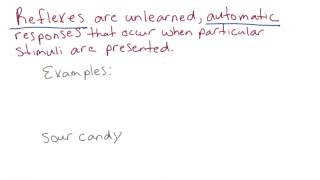 Reflexes are unlearned, automatic
responses that occur when particular
stimuli are presented.
Examples:
Sour candy